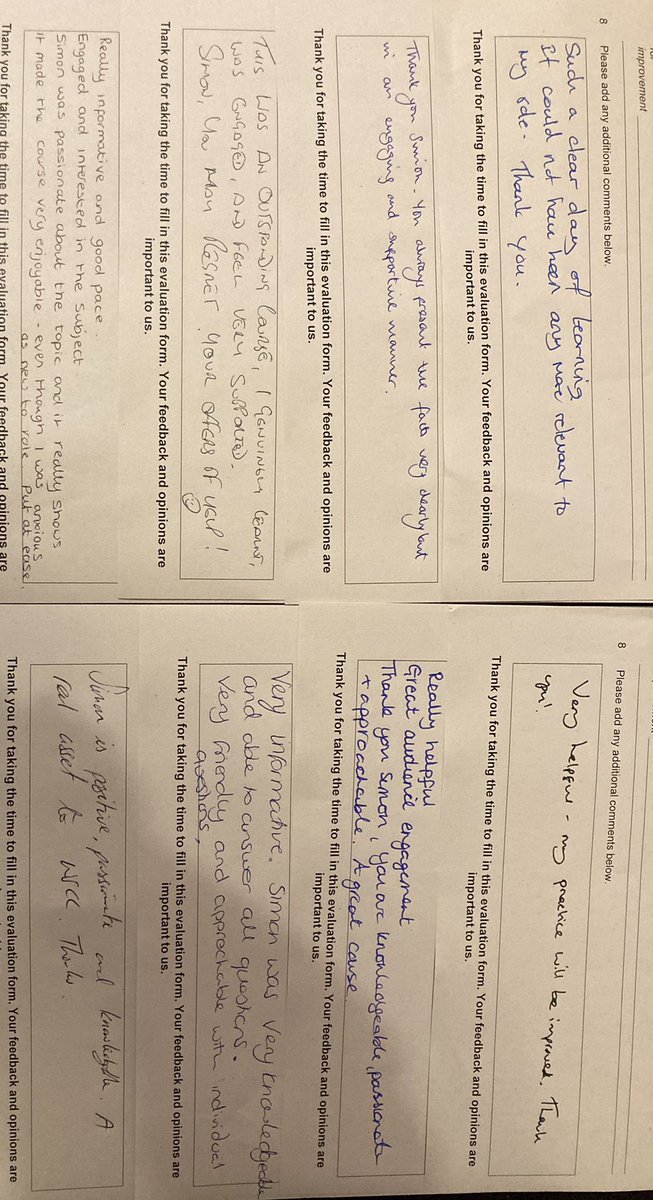 for
improvement
8 Please add any additional comments below.
Such a clear day of learning
It could not have been any more relevant to
my role. Thank you.
Thank you for taking the time to fill in this evaluation form. Your feedback and opinions are
important to us.
Thank you Simon. You always present the facts very clearly but
in an engaging and supportive manner.
Thank you for taking the time to fill in this evaluation form. Your feedback and opinions are
important to us.
THIS WAS AN OUTSTANDING COURSE, I GENUINELY LEARNT,
WAS ENGAGED, AND FEEL VERY SUPPORTED.
SIMON, YOU MAY REGRET YOUR OFFERS OF HELP!
Thank you for taking the time to fill in this evaluation form. Your feedback and opinions are
important to us.
Really informative and good pace.
Engaged and interested in the subject
Simon was passionate about the topic and it really shows
it made the course very enjoyable - even though I was anxious
as new to role. Put at ease.
Thank you for taking the time to fill in this evaluation form. Your feedback and opinions are
8 Please add any additional comments below.
Very helpful - my practice will be improved. Thank
you!
Thank you for taking the time to fill in this evaluation form. Your feedback and opinions are
important to us.
Really helpful
Great audience engagement
Thank you Simon, you are knowledgeable, passionate
+ approachable. A great course
Thank you for taking the time to fill in this evaluation form. Your feedback and opinions are
important to us.
Very informative. Simon was very knowledgeable
and able to answer all questions.
Very friendly and approachable with individual
questions,
Thank you for taking the time to fill in this evaluation form. Your feedback and opinions are
important to us.
Simon is positive, passionate and knowledgable. A
real asset to WCC Thanks.
Thank you for taking the time to fill in this evaluation form. Your feedback and opinions are